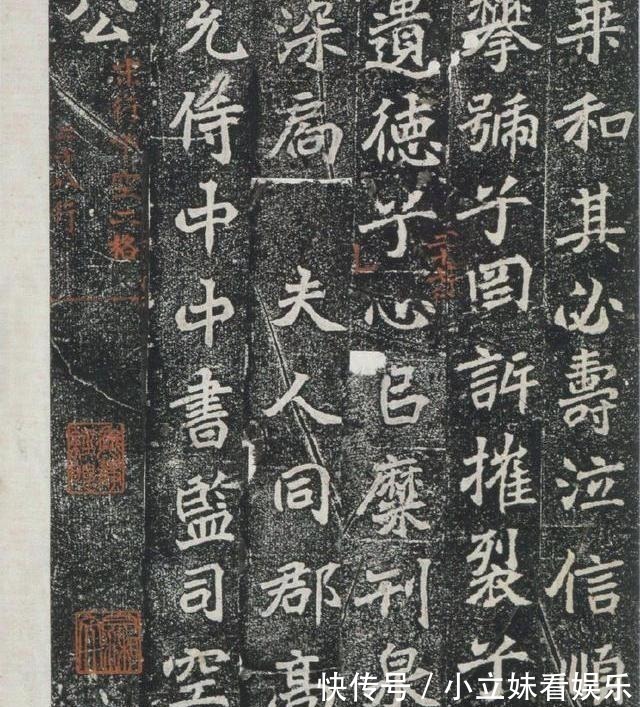 和其必壽泣信順
攀號兮罔訴摧裂兮
遺德兮心已糜刊泉
深扃 夫人同郡高
允侍中中書監司空
公
快传号 / 小立妹看娱乐